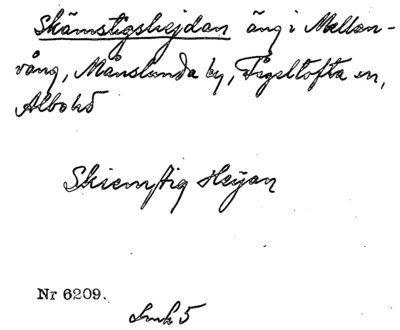 Skämstigshejdan äng i Mellan-
vång, Månslunda by, Fågeltofta sn,
Albo hd
Skiemstig Heijan
Nr 6209.
Lmk 5